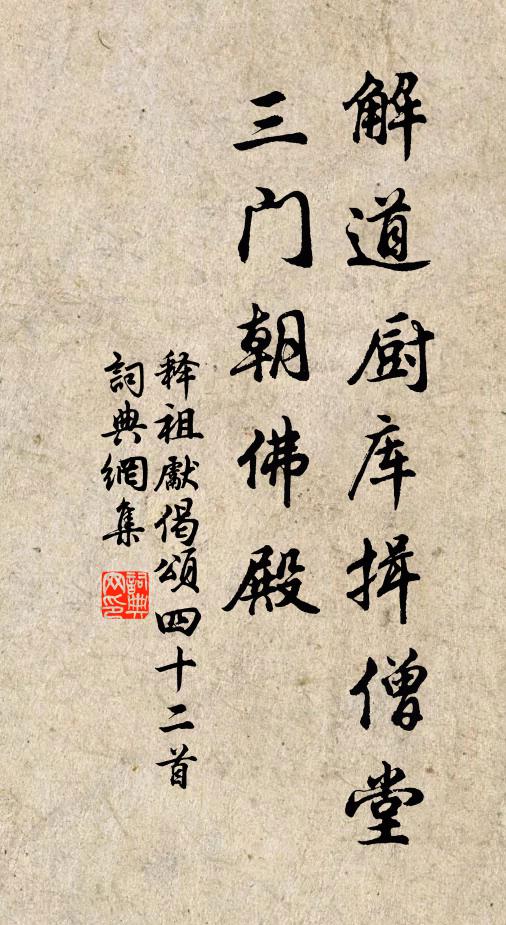 解道厨库揖僧堂
三门朝佛殿
释祖獻偈頌四十二首
詞典網集
詞典網印